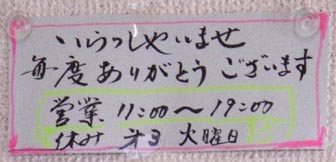 いらっしゃいませ
毎度ありがとうございます
営業 11:00〜19:00
休み 第3 火曜日